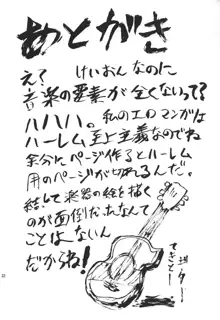 あとがき
え？ けいおんなのに
音楽の要素が全くないって？
ハハハ。私のエロマンガは
ハーレム至上主義なのでね
余分にページ作るとハーレム
用のページが切れるんだ。
決して楽器の絵を描く
のが面倒だったなんて
ことはないん
だからね！
ギター
てきとー